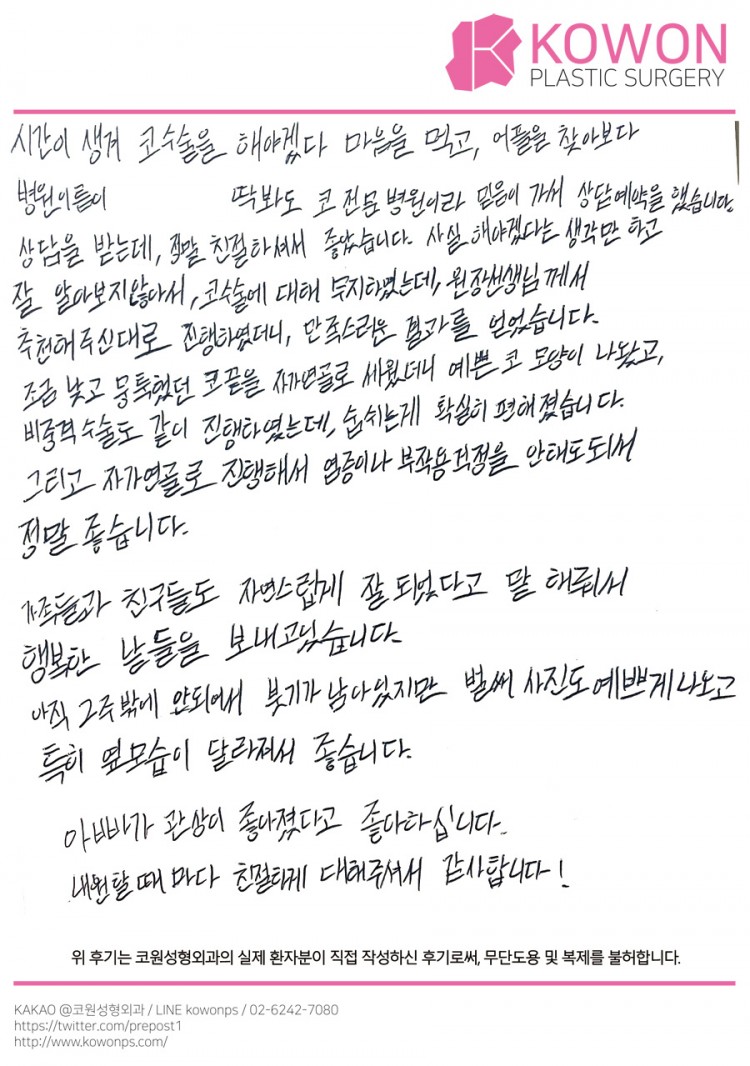 KOWON
PLASTIC SURGERY
시간이 생겨 코수술을 해야겠다 마음을 먹고, 어플을 찾아보다
병원이름이 딱봐도 코 전문 병원이라 믿음이 가서 상담예약을 했습니다.
상담을 받는데, 정말 친절하셔서 좋았습니다. 사실 해야겠다는 생각만 하고
잘 알아보지않아서, 코수술에 대해 무지하였는데, 원장선생님께서
추천해주신대로 진행하였더니, 만족스러운 결과를 얻었습니다.
조금 낮고 뭉툭했던 코끝을 자가연골로 세웠더니 예쁜 코 모양이 나왔고,
비중격수술도 같이 진행하였는데, 숨쉬는게 확실히 편해졌습니다.
그리고 자가연골로 진행해서 염증이나 부작용걱정을 안해도되서
정말 좋습니다.
가족들과 친구들도 자연스럽게 잘 되었다고 말 해줘서
행복한 날들을 보내고있습니다.
아직 2주밖에 안되어서 붓기가 남아있지만 벌써 사진도 예쁘게 나오고
특히 옆모습이 달라져서 좋습니다.
아빠가 관상이 좋아졌다고 좋아하십니다.
내원할때마다 친절하게 대해주셔서 감사합니다!
위 후기는 코원성형외과의 실제 환자분이 직접 작성하신 후기로써, 무단도용 및 복제를 불허합니다.
KAKAO @코원성형외과 / LINE kowonps / 02-6242-7080
https://twitter.com/prepost1
http://www.kowonps.com/